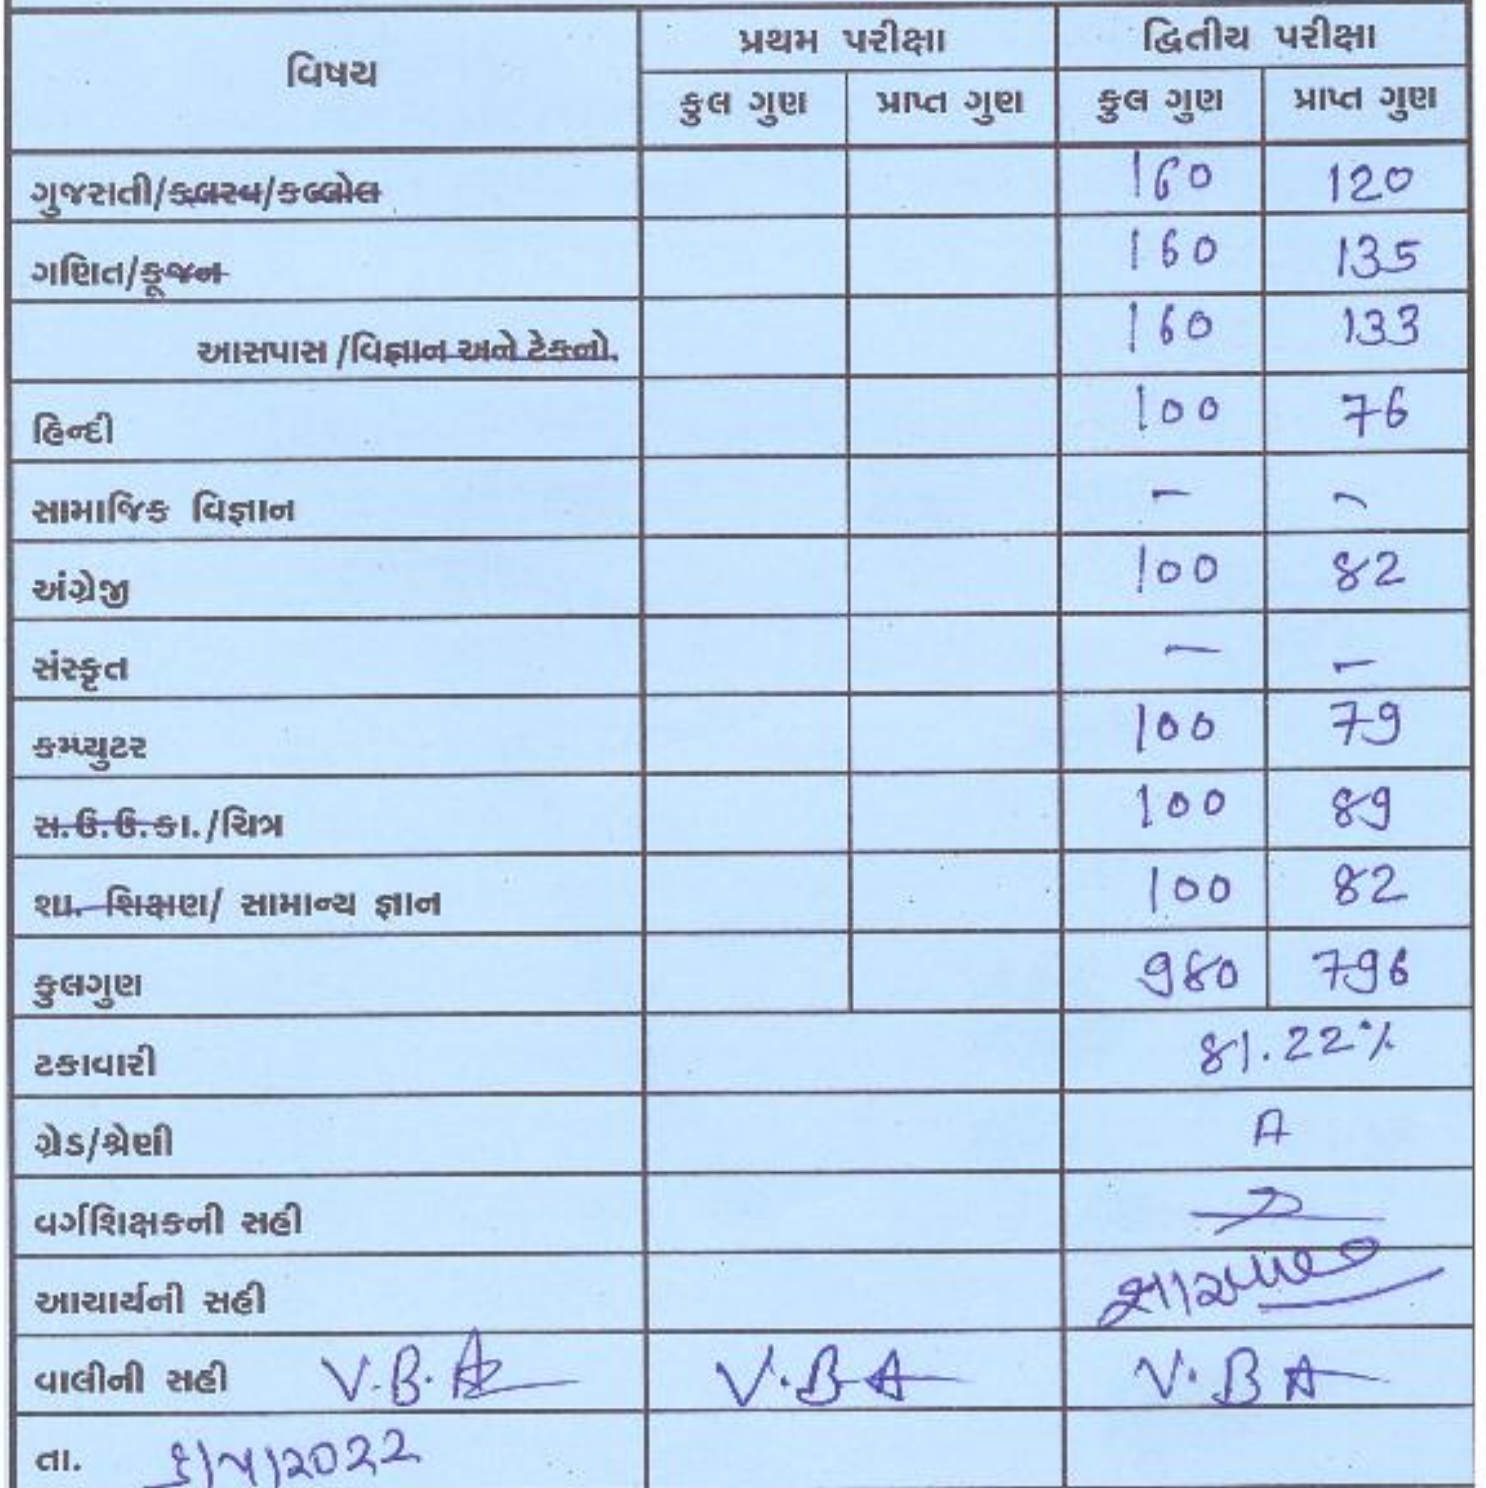 વિષય પ્રથમ પરીક્ષા દ્વિતીય પરીક્ષા
કુલ ગુણ પ્રાપ્ત ગુણ કુલ ગુણ પ્રાપ્ત ગુણ
ગુજરાતી/કલરવ/કલ્લોલ 160 120
ગણિત/કૂજન 160 135
આસપાસ /વિજ્ઞાન અને ટેકનો. 160 133
હિન્દી 100 76
સામાજિક વિજ્ઞાન - -
અંગ્રેજી 100 82
સંસ્કૃત - -
કમ્પ્યુટર 100 79
સ.ઉ.ઉ.કા./ચિત્ર 100 89
શા. શિક્ષણ/ સામાન્ય જ્ઞાન 100 82
કુલગુણ 980 796
ટકાવારી 81.22%
ગ્રેડ/શ્રેણી A
વર્ગશિક્ષકની સહી
આચાર્યની સહી
વાલીની સહી V.B.A V.B.A V.B A
તા. 2022